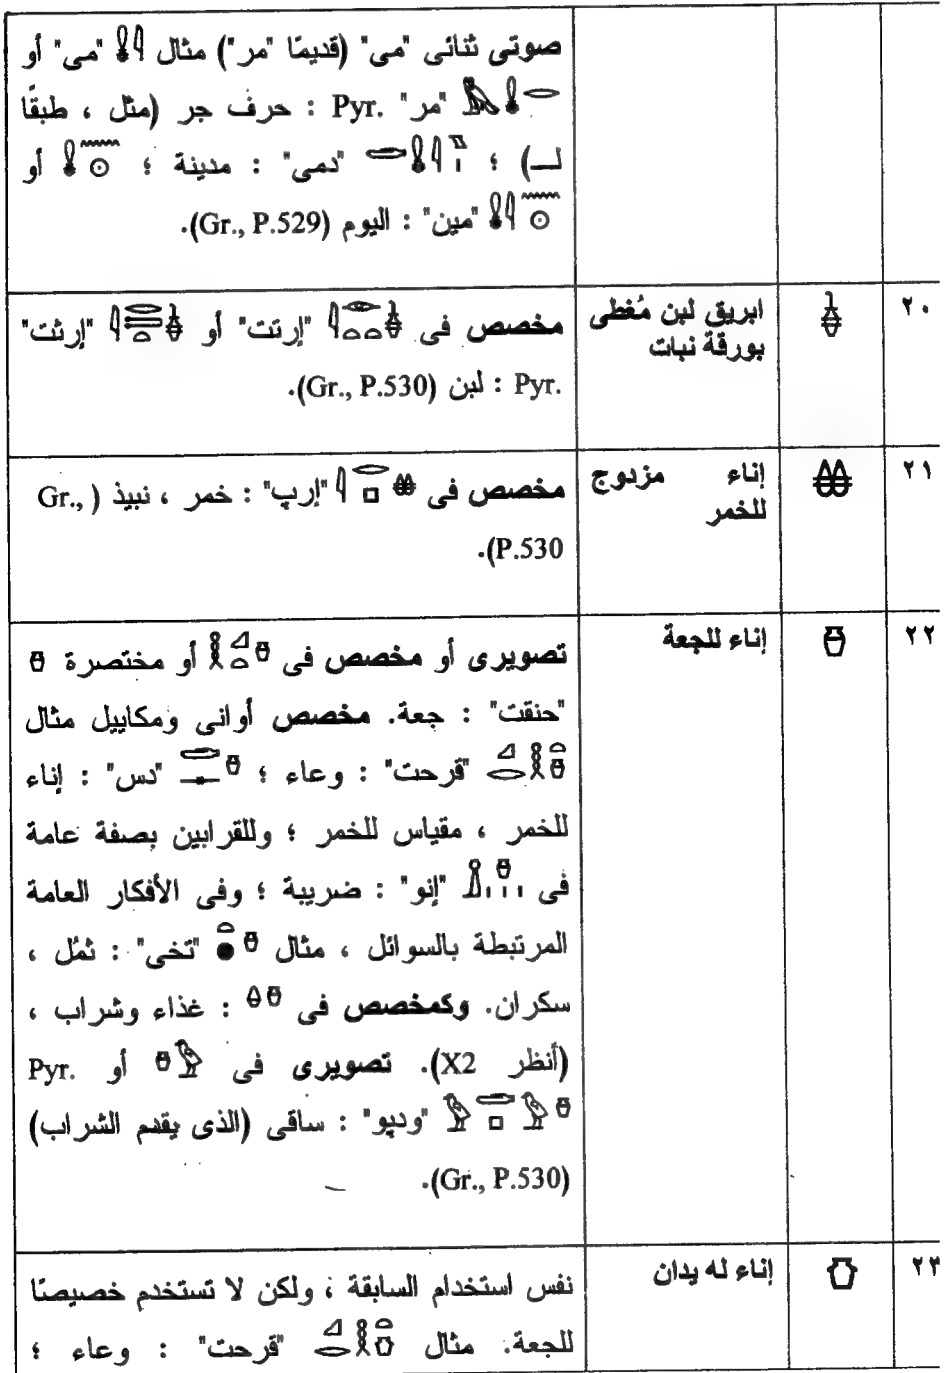 صوتى ثنائى "مى" (قديمًا "مر") مثال 𓇋𓏇 "مى" أو
"مر" Pyr. : حرف جر (مثل ، طبقًا
لـ) ؛ "دمى" : مدينة ؛ أو
"مين" : اليوم (Gr., P.529).
٢٠ ابريق لبن مُغطى مخصص فى "إرتت" أو "إرثت"
بورقة نبات
Pyr. : لبن (Gr., P.530).
٢١ إناء مزدوج مخصص فى "إرپ" : خمر ، نبيذ (Gr.,
للخمر
P.530).
٢٢ إناء للجعة تصويرى أو مخصص فى أو مختصرة
"حنقت" : جعة. مخصص أوانى ومكاييل مثال
"قرحت" : وعاء ؛ "دس" : إناء
للخمر ، مقياس للخمر ؛ وللقرابين بصفة عامة
فى "إنو" : ضريبة ؛ وفى الأفكار العامة
المرتبطة بالسوائل ، مثال "تخى" : ثمُل ،
سكران. وكمخصص فى : غذاء وشراب ،
(أنظر X2). تصويرى فى أو Pyr.
"ودپو" : ساقى (الذى يقدم الشراب)
(Gr., P.530).
٢٣ إناء له يدان نفس استخدام السابقة ، ولكن لا تستخدم خصيصًا
للجعة. مثال "قرحت" : وعاء ؛